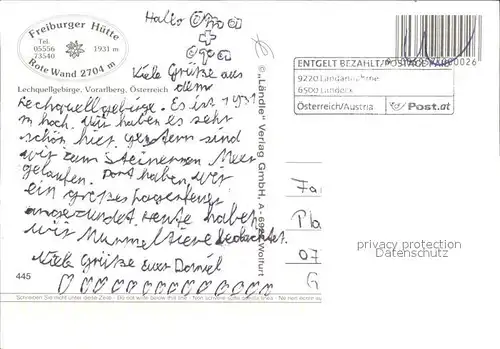 Freiburger Hütte
Tel.
05556
73540
1931 m
Rote Wand 2704 m
Lechquellgebirge, Vorarlberg, Österreich
Hallo Oma
Opa
Viele Grüße aus
dem
Lechquellgebirge. Es ist 1931
m hoch. Wir haben es sehr
schön hier. Gestern sind
wir zum Steinernen Meer
gelaufen. Dort haben wir
ein großes
angezündet. Heute haben
wir Murmeltiere beobachtet.
Viele Grüße euer Daniel
445
Schreiben Sie nicht unter diese Zeile - Do not write below this line - Non scrivere sotto questa linea - Ne rien écrire
© „Ländle" Verlag GmbH, A-6922 Wolfurt
ENTGELT BEZAHLT/POSTAGE PAID
9220 Landannahme
6500 Landeck
Österreich/Austria Post.at
Fa
Pla
07
G
privacy protection
Datenschutz